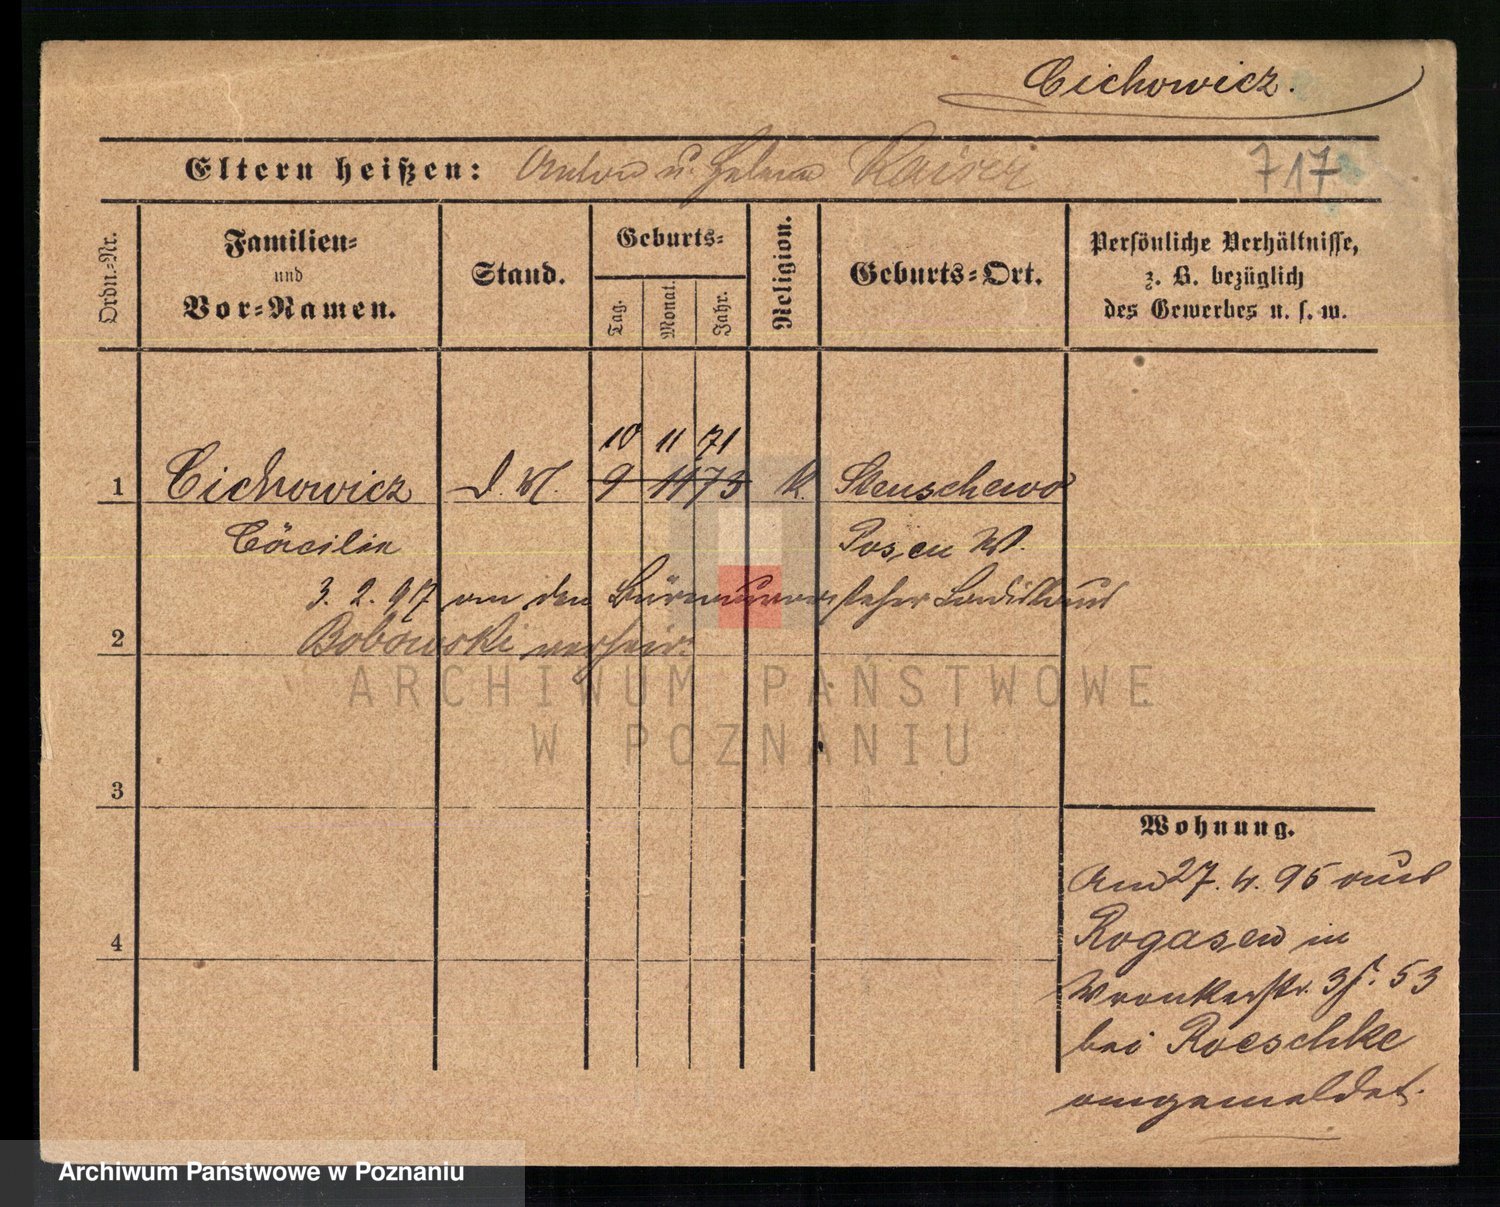 Cichowicz.
Eltern heißen: Anton u. Helena Kaiser
717
Ordn.-Nr.
Familien-
und
Vor-Namen.
Stand.
Geburts-
Tag.
Monat.
Jahr.
Religion.
Geburts-Ort.
Persönliche Verhältnisse,
z. B. bezüglich
des Gewerbes u. s. w.
10 11 71
1 Cichowicz d. M. 9 11 73 k. Stenschewo
Cäcilie Posen W.
3. 2. 97 an den Bürauvorsteher Ladislaus
2 Bobowski verheir.
3
4
Wohnung.
Am 27. 4. 95 aus
Rogasen in
Wronkerstr. 53
bei Roeschke
angemeldet.
ARCHIWUM PAŃSTWOWE
W POZNANIU
Archiwum Państwowe w Poznaniu